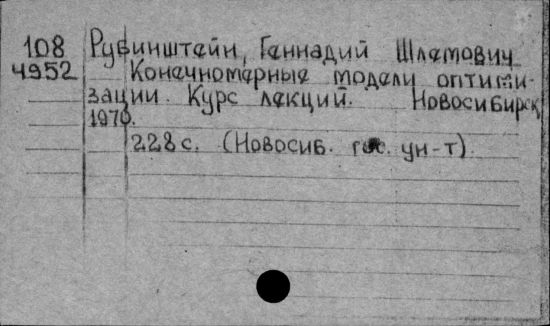 108 Рубинштейн, Геннадий Шлемович
4952 Конечномерные модели оптими-
зации. Курс лекций. Новосибирск,
1970.
228 с. (Новосиб. гос. ун-т).